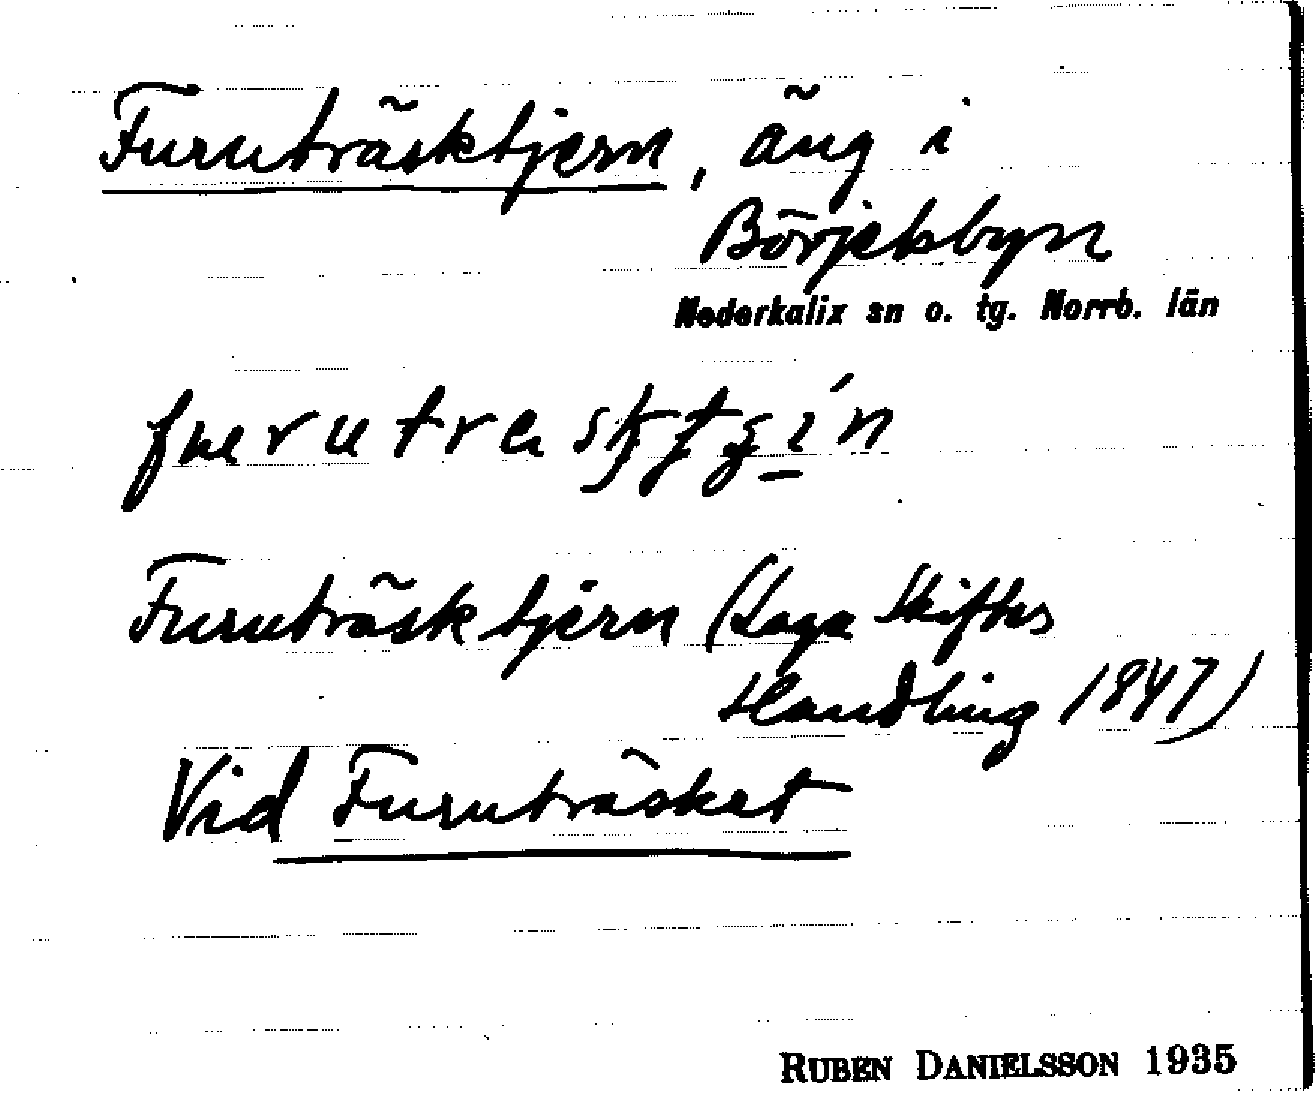 Furuträsktjern, äng i
Börjelsbyn
Nederkalix sn o. tg. Norrb. län
Furuträsktjern (Laga Skiftes
Handling 1847)
Vid Furuträsket
RUBEN DANIELSSON 1935